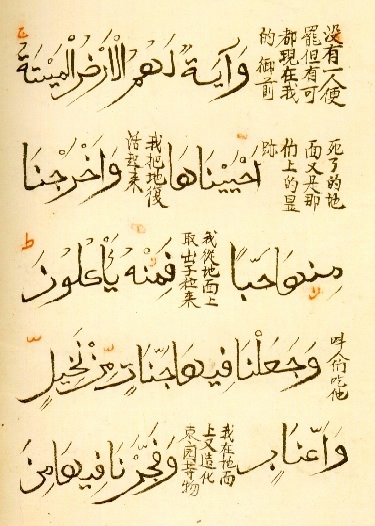 没有一人便
罷但有可
都現在我
的御前
وَآيَةٌ لَهُمُ الْأَرْضُ الْمَيْتَةُ
死了的地
面又是那
上的
跡
اَحْيَيْنَاهَا
我把地復
活起來
وَاَخْرَجْنَا
مِنْهَا حَبًّا
我從地面上
取出子粒來
فَمِنْهُ يَأْكُلُونَ
吃他
وَجَعَلْنَا فِيهَا جَنَّاتٍ مِنْ نَخِيلٍ
وَاَعْنَابٍ
我在地面
上又造化
園等物
وَفَجَّرْنَا فِيهَا مِنَ